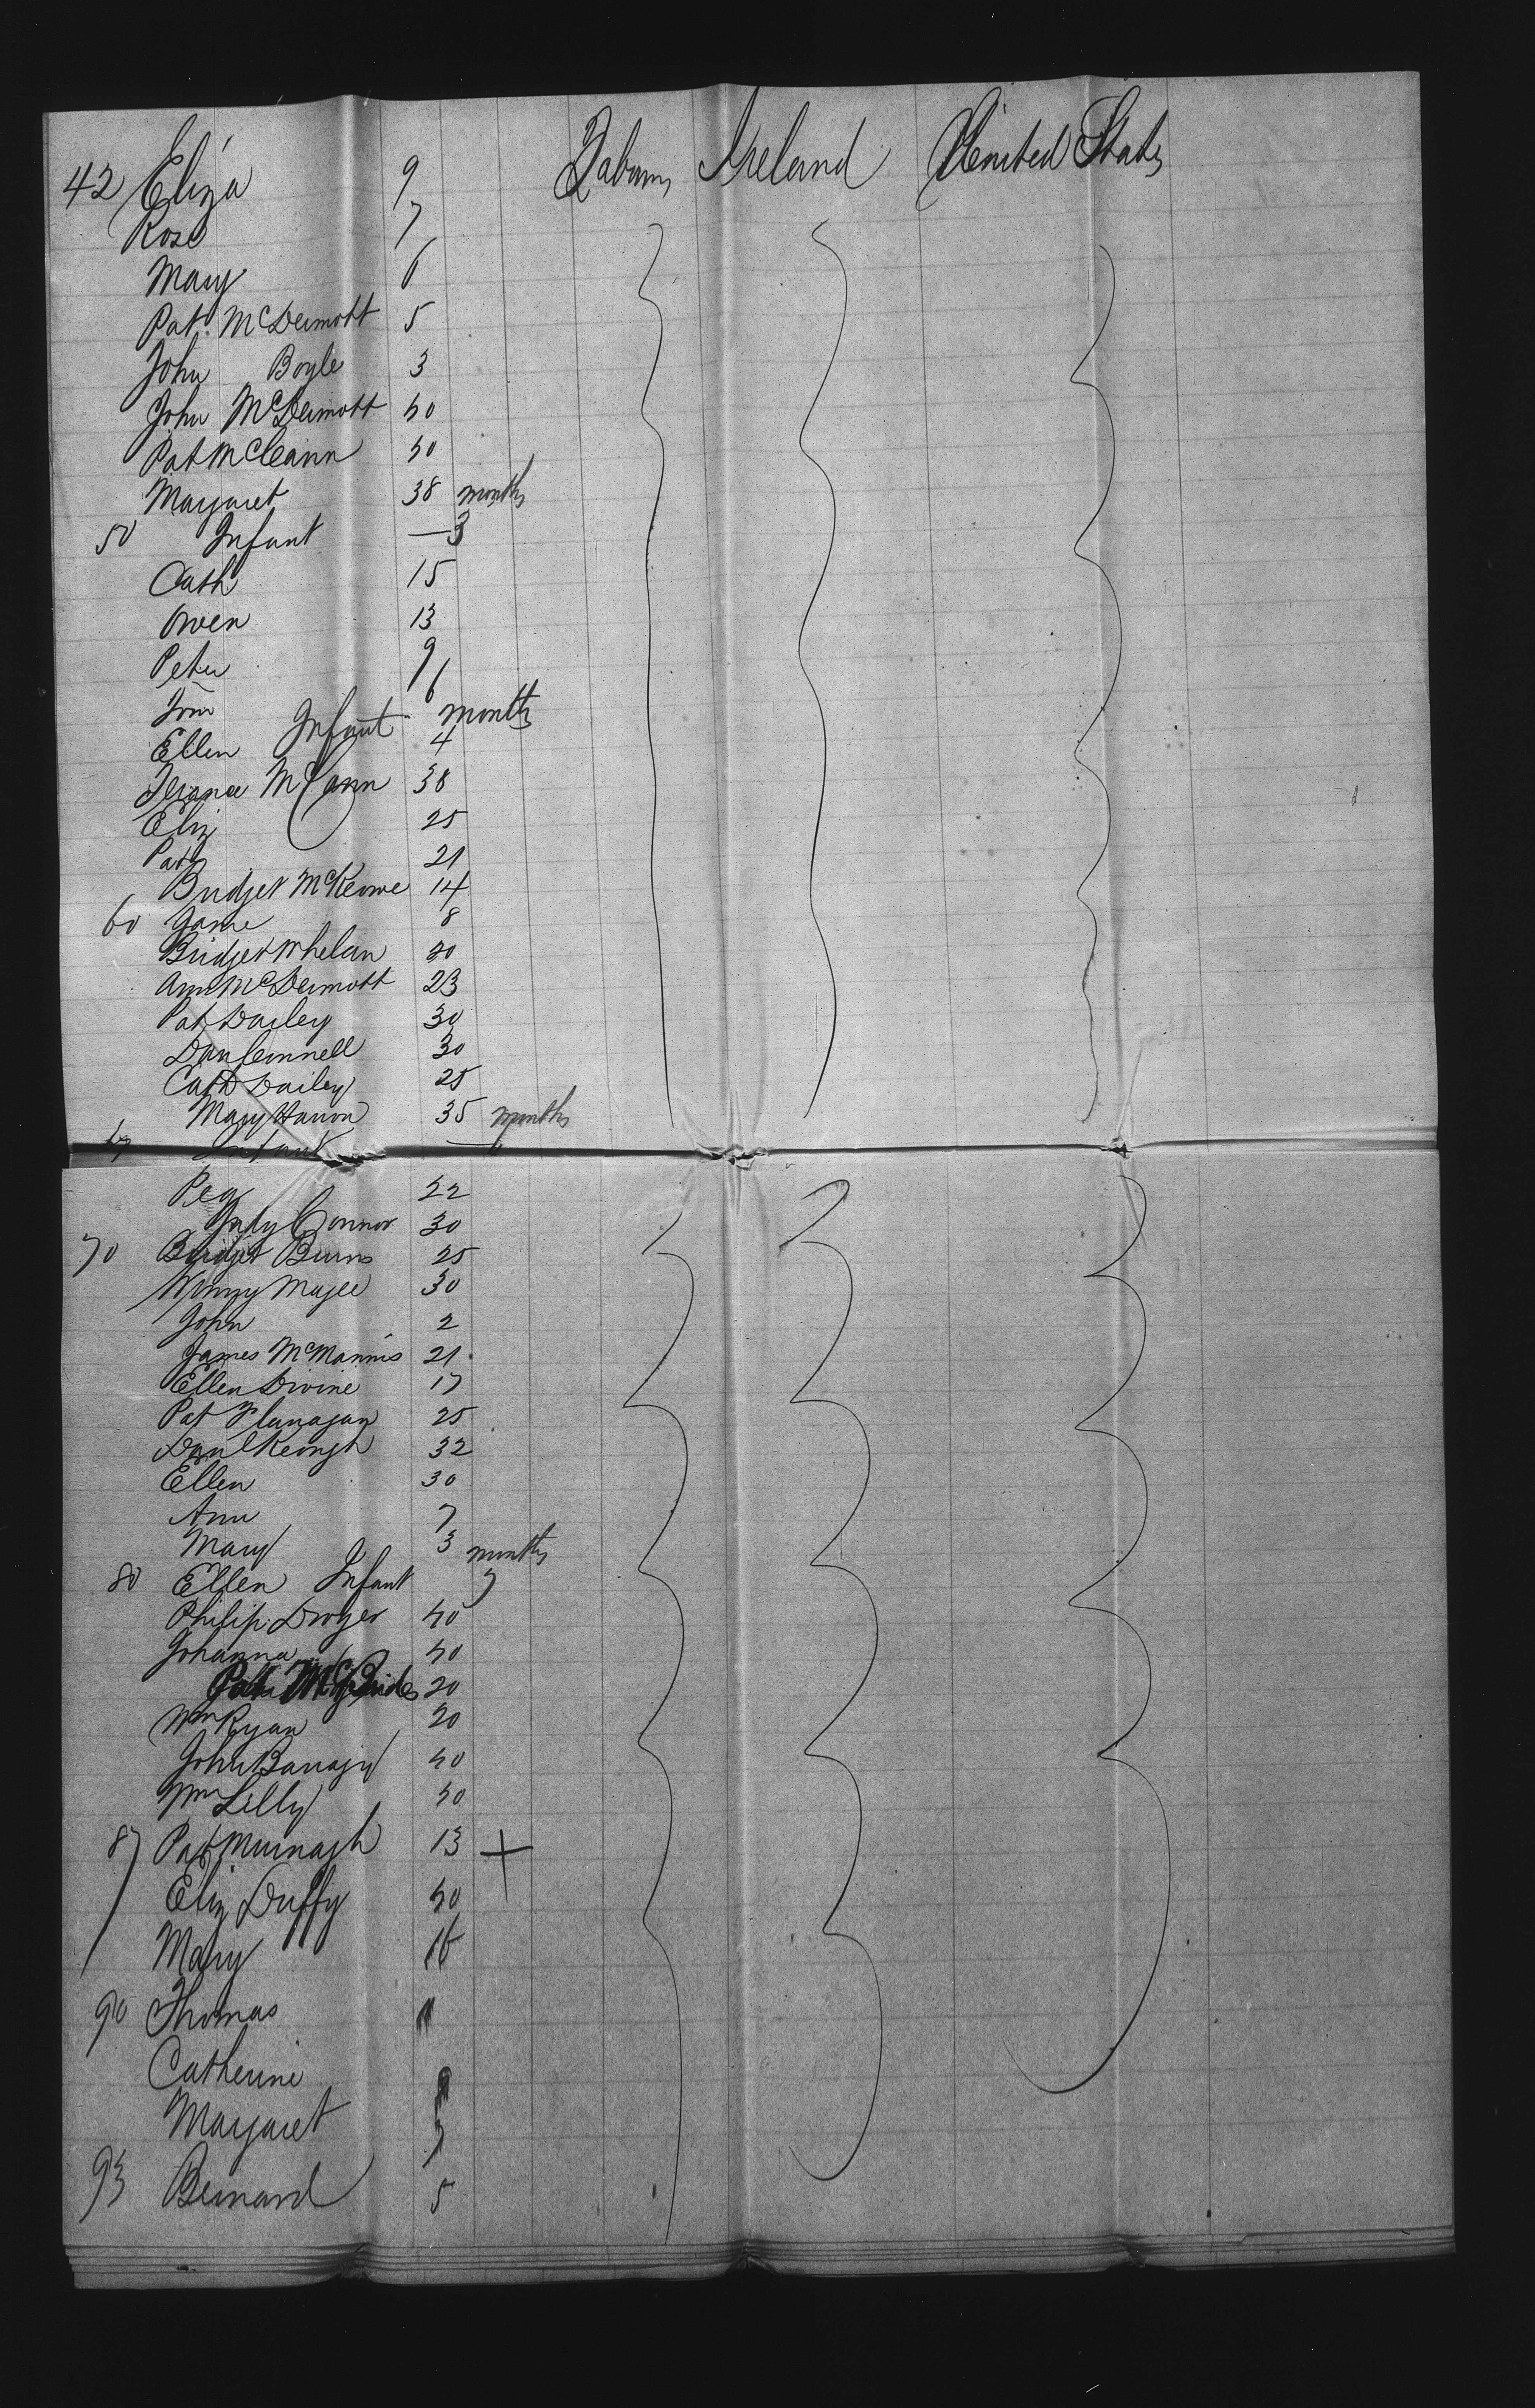 42 Eliza 9 Labour Ireland United States
Rose 7
Mary 6
Pat McDermott 5
John Boyle 3
John McDermott 50
Pat McCann 50
Margaret 38 months
50 Infant — 3
Cath 15
Owen 13
Peter 9
Tom 6
Ellen Infant 4 months
McCann 38
Eliz 25
Pat 21
Bridget McKeowe 14
60 Jane 8
Bridget Whelan 20
Ann McDermott 23
Pat Dailey 30
Dan Connell 30
Cath Dailey 25
Mary 35 months
67 Infant
Peg 22
Judy Connor 30
70 Bridget Burns 25
Winny Magee 30
John 2
James McMannis 21
Ellen Divine 17
Pat Flanagan 25
Danl Keough 32
Ellen 30
Ann 7
Mary 3 months
80 Ellen Infant 9
Philip Dwyer 40
Johanna 40
Pat 20
Wm Ryan 20
John 40
Wm Lilly 50
87 Pat Murnagh 13 +
Eliz Duffy 40
Mary 16
90 Thomas
Catherine
Margaret
93 Bernard 5